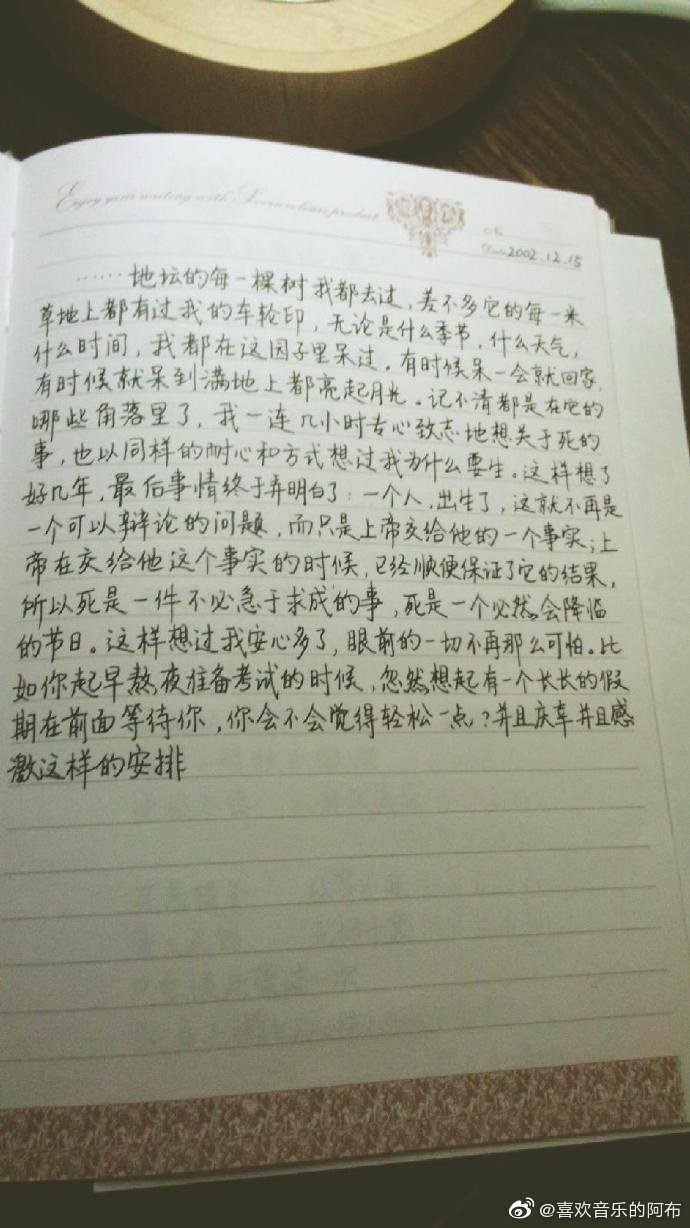 Enjoy your writing with
No
Date 2002.12.15
……地坛的每一棵树我都去过，差不多它的每一米
草地上都有过我的车轮印，无论是什么季节，什么天气，
什么时间，我都在这园子里呆过。有时候呆一会就回家，
有时候就呆到满地上都亮起月光。记不清都是在它的
哪些角落里了，我一连几小时专心致志地想关于死的
事，也以同样的耐心和方式想过我为什么要生。这样想了
好几年，最后事情终于弄明白了：一个人，出生了，这就不再是
一个可以辩论的问题，而只是上帝交给他的一个事实；上
帝在交给他这个事实的时候，已经顺便保证了它的结果，
所以死是一件不必急于求成的事，死是一个必然会降临
的节日。这样想过我安心多了，眼前的一切不再那么可怕。比
如你起早熬夜准备考试的时候，忽然想起有一个长长的假
期在前面等待你，你会不会觉得轻松一点？并且庆幸并且感
激这样的安排
@喜欢音乐的阿布